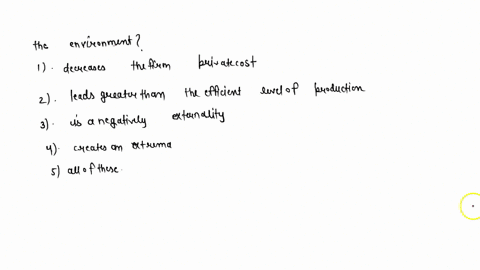 the environment?
1). decreases the firm private cost
2). leads greater than the efficient level of production
3). is a negatively externality
4). creates an extrema
5) all of these.